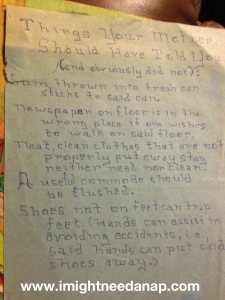 Things Your Mother
Should Have Told You
(and obviously did not):
Gum thrown into fresh can
sticks to said can.
Newspaper on floor is in the
wrong place if one wishes
to walk on said floor.
Neat, clean clothes that are not
properly put away stay
neither neat nor clean.
A used commode should
be flushed.
Shoes not on feet can trip
feet. (Hands can assist in
avoiding accidents, i.e.
said hands can put said
shoes away.)
www.imightneedanap.com